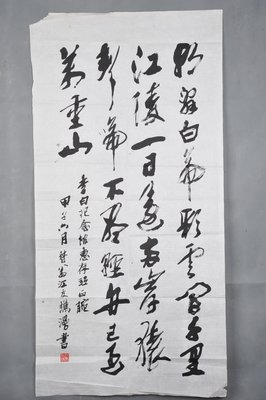 朝辭白帝彩雲間千里
江陵一日還兩岸猿
聲啼不盡輕舟已過
萬重山
李白纪念馆惠存
甲子六月 書